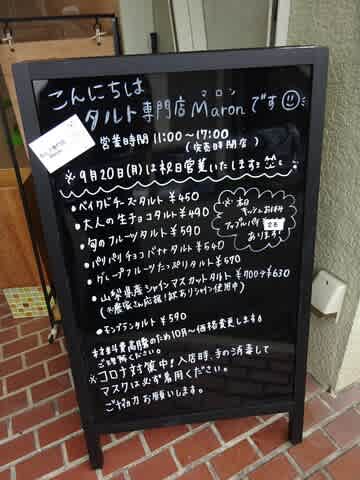 こんにちは
マロン
タルト専門店Maronです
営業時間 11:00〜17:00
(完売時閉店)
※9月20日(月)は祝日営業いたします
・ベイクドチーズタルト ¥450
・大人の生チョコタルト ¥490
・旬のフルーツタルト ¥590
・パリパリチョコバナナタルト ¥540
・グレープフルーツたっぷりタルト ¥570
・山梨県産シャインマスカットタルト ¥700→¥630
(※農家さん応援!訳ありシャイン使用中)
・モンブランタルト ¥590
※本日
キッシュお休み
アップルパイ
あります
材料費高騰のため10月〜価格変更します
ご理解ください。
※コロナ対策中!入店時、手の消毒して
マスクは必ず着用ください。
ご協力お願いします。